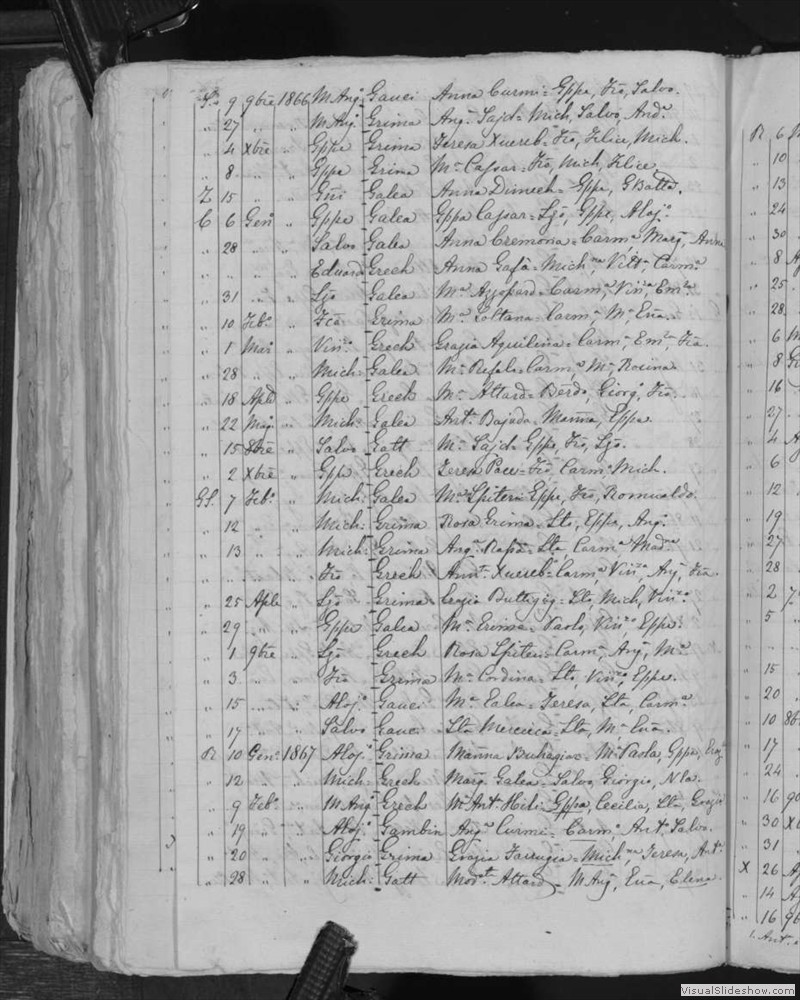 S. 9 9bre 1866 M Ang. Gauci Anna Curmi = Gppe, Frō, Salvo.
" 27 " " M Ang. Grima Ang. Sajd = Mich, Salvo, And.
" 4 Xbre " Gppe Grima Teresa Xuereb = Frō, Felice, Mich.
" 8 " " Gppe Grima Ma Cassar = Frō, Mich, Felice
Z 15 " " Galea Anna Dimech = Gppe, GBatta.
C 6 Gen. " Gppe Galea Gppa Cassar = Ljō, Gppe, Aloj.
" 28 " " Salvo Galea Anna Cremona = Carma Marg. Anna
" " " " Eduard Grech Anna Gafa = Michna, Vitt. Carma
" 31 " " Ljō Galea Ma Azzopard = Carma, Vinza, Ema
" 10 Feb. " Frō Grima Ma Soltana = Carma Ma Eva.
" 1 Mar " Vinzo Grech Grazia Aquilina = Carma, Ema, Fra.
" 28 " " Mich. Galea Ma = Carma Ma Rosina
" 18 Aple " Gppe Grech Ma Attard = Berdo, Giorg, Frō.
" 22 Mag. " Mich. Galea Anta Bajada = Manna, Gppa
" 15 8bre " Salvo Gatt Ma Sajd = Gppe, Frō, Ljō.
" 2 Xbre " Gppe Grech Teresa Pace = Frō, Carma Mich.
GS. 7 Feb. " Mich. Galea Ma Spiteri = Gppe, Frō, Romualdo.
" 12 " " Mich. Grima Rosa Grima = Lta, Gppa, Ang.
" 13 " " Mich. Grima Anga = Lta, Carma
" " " " Frō Grech Xuereb = Carma Vinza, Ang. Fra
" 25 Aple " Ljō Grima Grazia Buttigig = Lta, Mich, Vinzo.
" 29 " " Gppe Galea Ma Grima = Paolo, Vinzo, Gppe.
" 1 9bre " Ljō Grech Rosa Spiteri = Carma, Ang. Ma
" 3 " " Frō Grima Ma Cordina = Lta, Vinzo, Gppe.
" 15 " " Aloj. Gauci Ma Galea = Teresa, Lta, Carma
" 17 " " Salvo Gauci Lta Mercieca = Lta, Ma Eva.
R 10 Gen. 1867 Aloj. Grima Manna Buhagiar = Ma Paola, Gppe,
" 12 " " Mich. Grech Marg. Galea = Salvo, Giorgio, Nla.
" 9 Feb. " M Ang. Grech Ma Ant. Hili = Gppa, Cecilia, Lta, Grazia
" 19 " " Aloj. Gambin Anga Curmi = Carma Ant. Salvo.
" 20 " " Giorgio Grima Grazia Farrugia = Michna, Teresa, Anta
" 28 " " Mich. Gatt Attard = M Ang, Eva, Elena
R 6
" 10
" 13
" 24
" 30
" 8
" 25
" 28
" 6
" 8
" 16
" 27
" 4
" 6
" 12
" 19
" 27
" 28
" 2
" 5
" 15
" 20
" 10 8b
" 17
" 24
" 16 9
" 30 X
" 31
X 26
" 14
" 16 9b
1. Ant.
VisualSlideshow.com